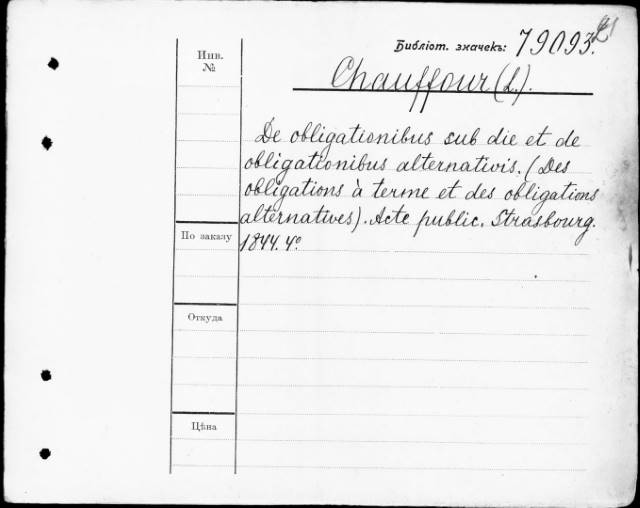 Библіот. значекъ: 79093.
Инв.
№
Chauffour (L.).
De obligationibus sub die et de
obligationibus alternativis. (Des
obligations à terme et des obligations
alternatives). Acte public. Strasbourg.
По заказу
1844. 4º
Откуда
Цѣна